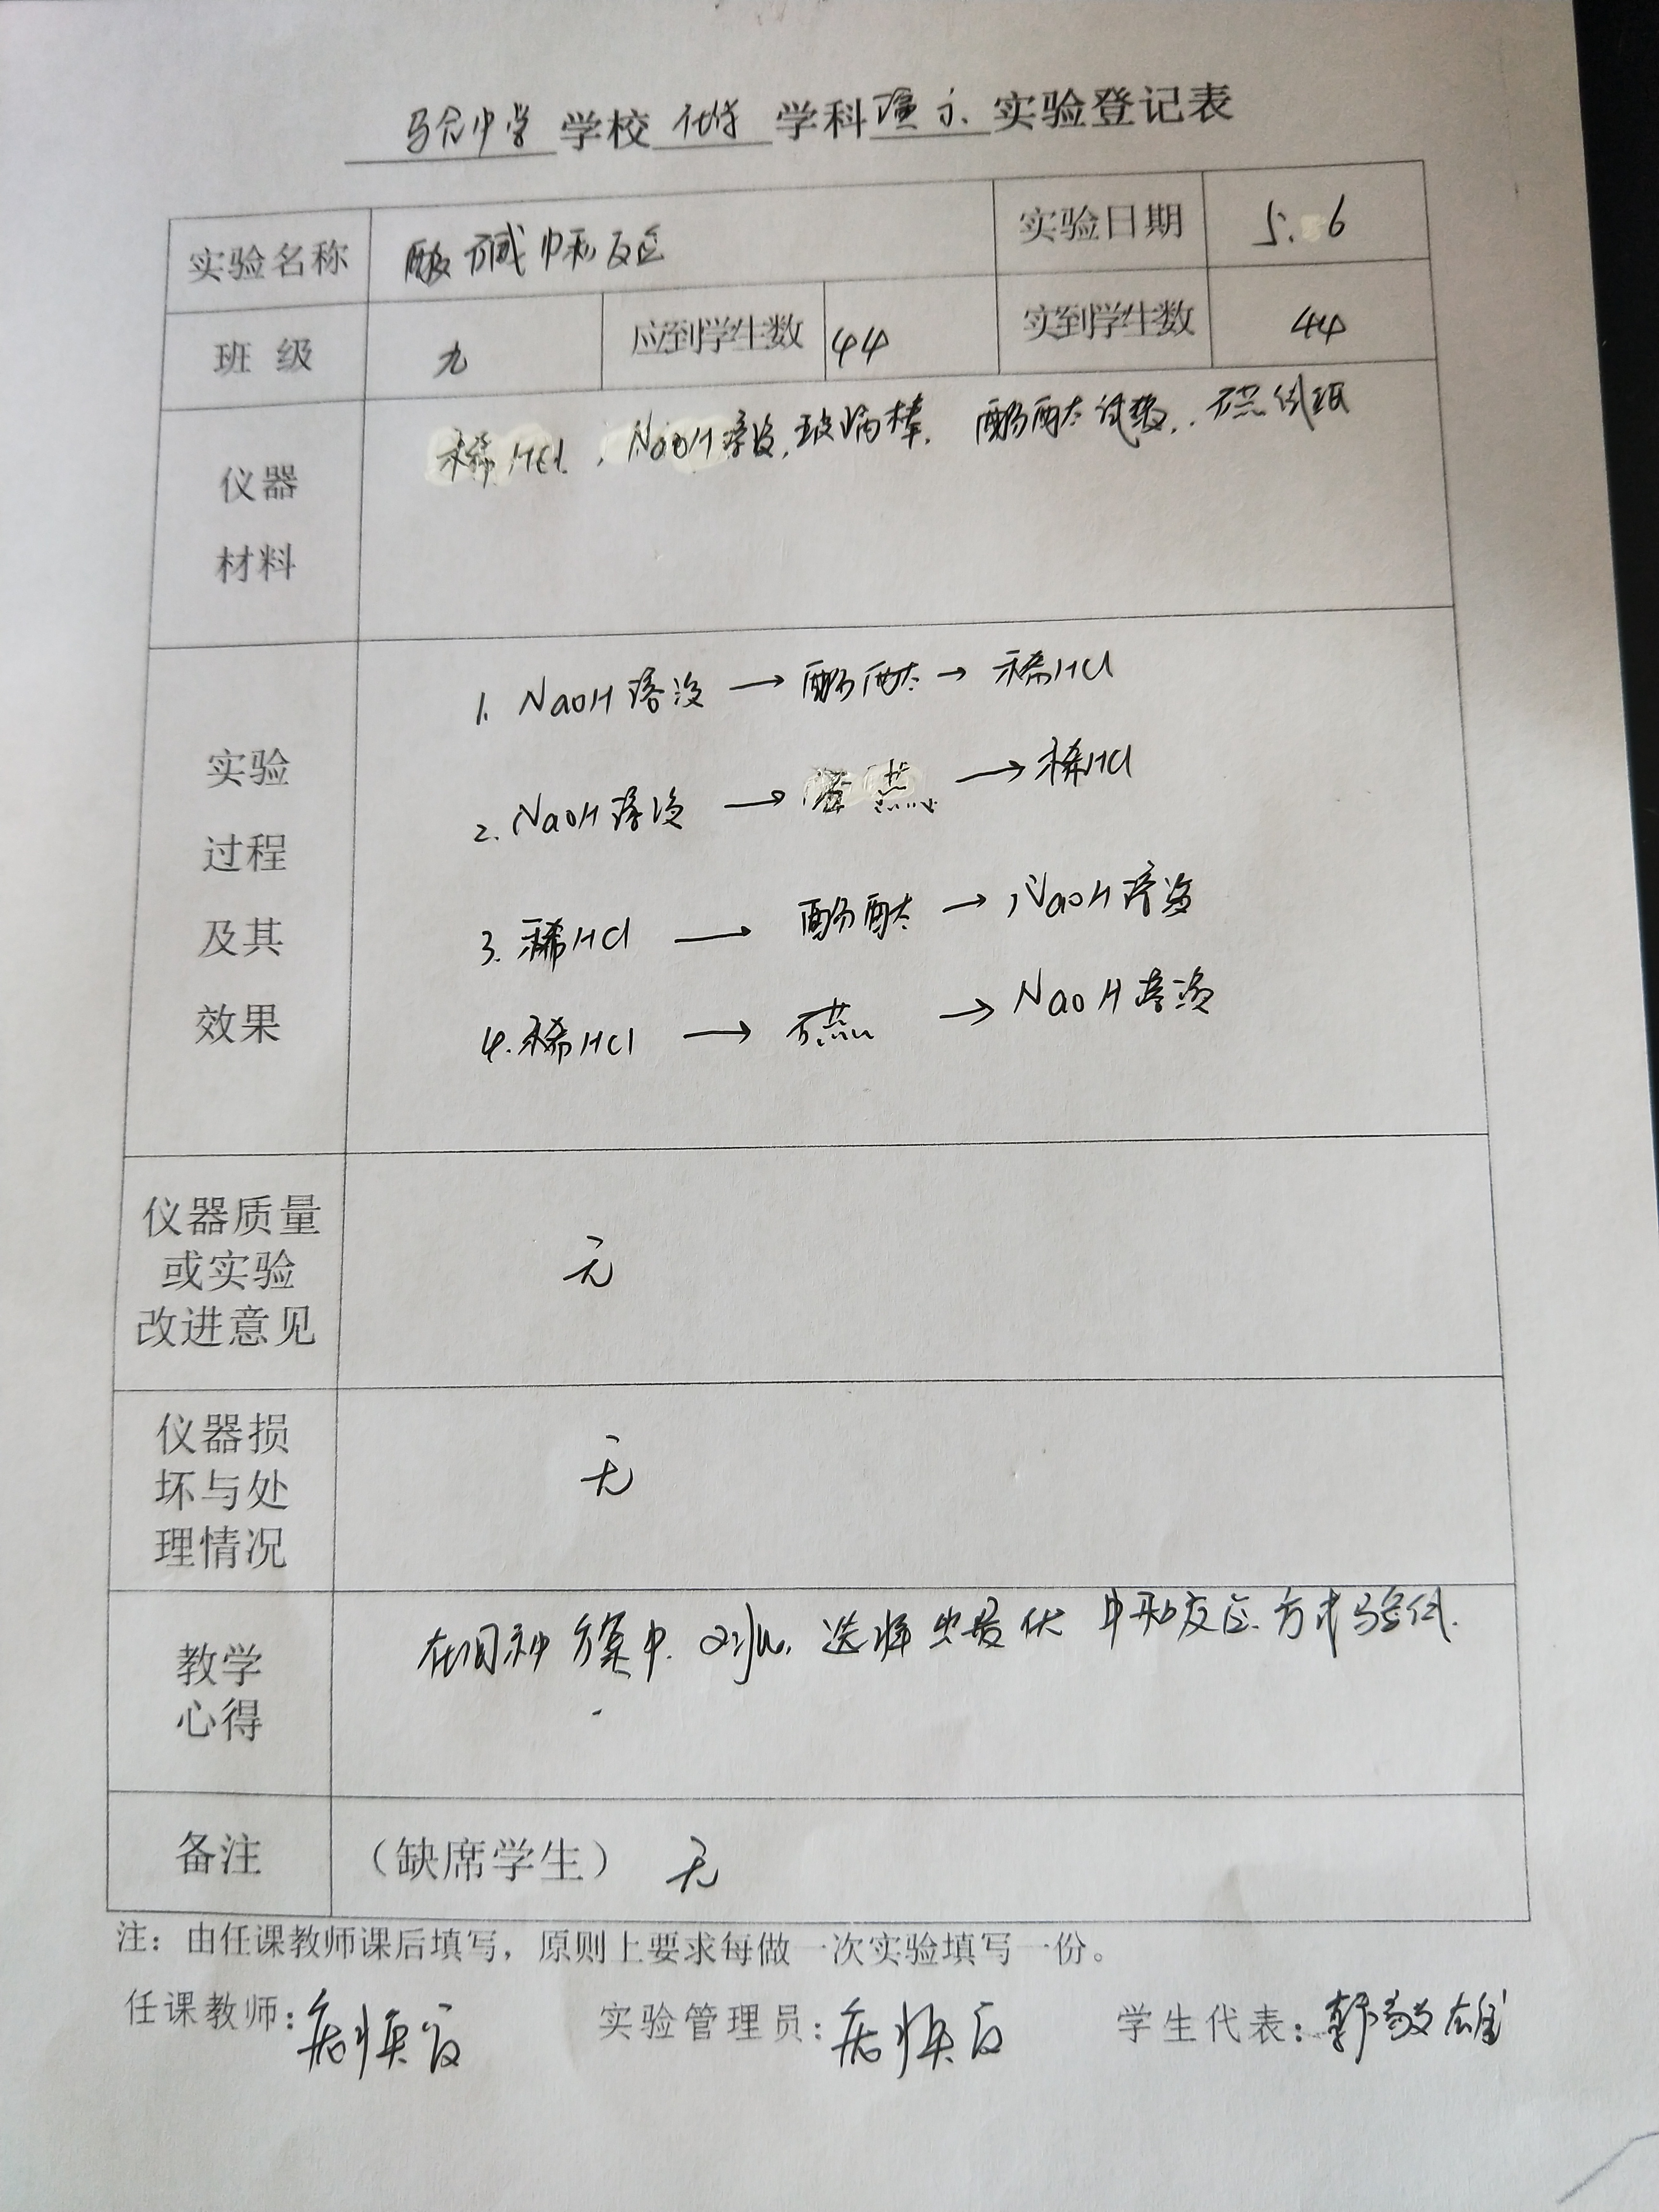 中学学校化学学科演示实验登记表
实验名称 酸碱中和反应 实验日期 5.6
班级 九 应到学生数 44 实到学生数 44
仪器材料 稀HCl,NaOH溶液,玻璃棒.酚酞试液,.试纸
实验过程及其效果
1. NaOH溶液→酚酞→稀HCl
2. NaOH溶液→→稀HCl
3. 稀HCl→酚酞→NaOH溶液
4. 稀HCl→→NaOH溶液
仪器质量或实验改进意见 无
仪器损坏与处理情况 无
教学心得 在四种方案中.对比.选择出最优中和反应.方式验证.
备注 (缺席学生) 无
注:由任课教师课后填写,原则上要求每做一次实验填写一份。
任课教师: 实验管理员: 学生代表:韩敬雄